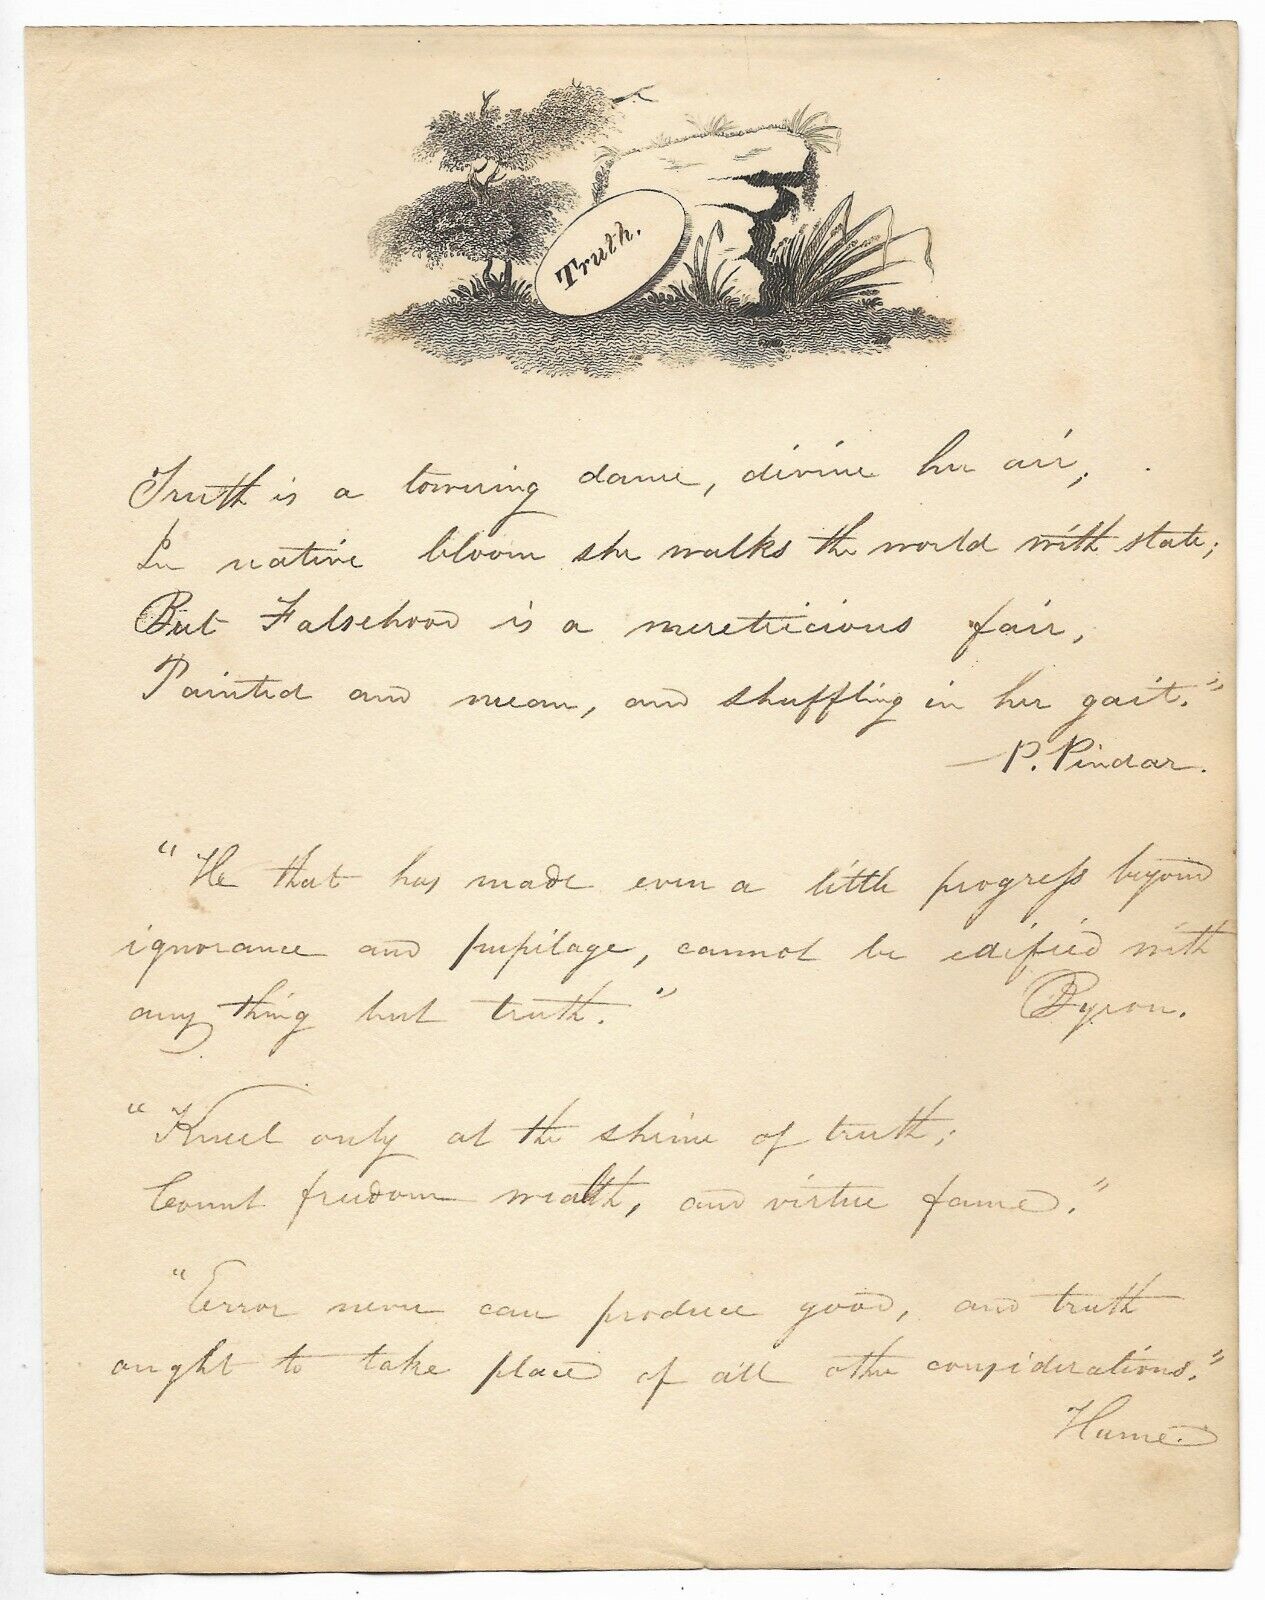 Truth.
Truth is a towering dame, divine her air;
In native bloom she walks the world with state;
But Falsehood is a meretricious fair,
Painted and mean, and shuffling in her gait."
—P. Pindar.
"He that has made even a little progress beyond
ignorance and pupilage, cannot be edified with
any thing but truth." Byron.
"Kneel only at the shrine of truth;
Count freedom wealth, and virtue fame."
"Error never can produce good, and truth
ought to take place of all other considerations."
Hume.